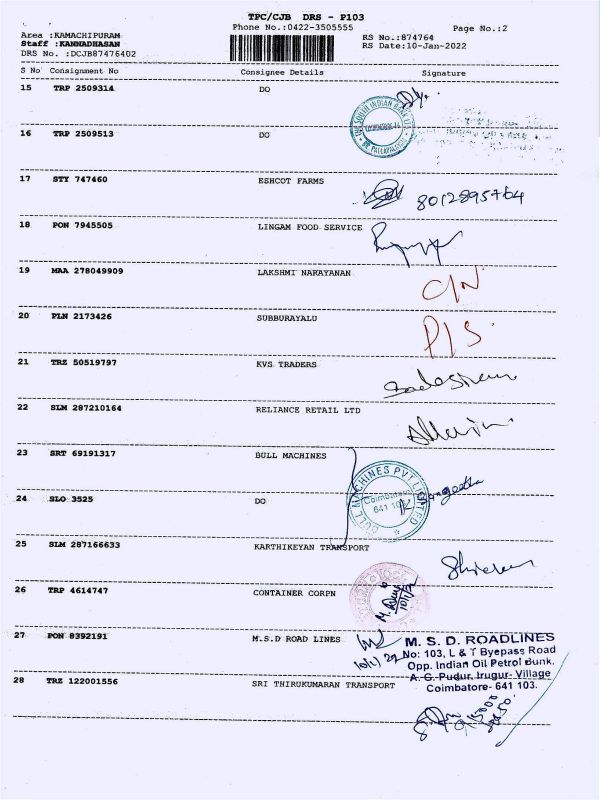 TPC/CJB DRS - P103
Phone No.:0422-3505555
Page No.:2
Area :KAMACHIPURAM
Staff :KANNADHASAN
DRS No. :DCJB87476402
RS No.:874764
RS Date:10-Jan-2022
S No Consignment No Consignee Details Signature
15 TRP 2509314 DO
16 TRP 2509513 DO
THE SOUTH INDIAN BANK LTD
17 STY 747460 ESHCOT FARMS
8012895764
18 PON 7945505 LINGAM FOOD SERVICE
19 MAA 278049909 LAKSHMI NARAYANAN
C/N
20 PLN 2173426 SUBBURAYALU
P/S.
21 TRZ 50519797 KVS TRADERS
22 SLM 287210164 RELIANCE RETAIL LTD
23 SRT 69191317 BULL MACHINES
BULL MACHINES PVT LIMITED
Coimbatore
641 103
24 SLO 3525 DO
25 SLM 287166633 KARTHIKEYAN TRANSPORT
26 TRP 4614747 CONTAINER CORPN
27 PON 8392191 M.S.D ROAD LINES
M. S. D. ROADLINES
No: 103, L & T Byepass Road
Opp. Indian Oil Petrol Bunk,
A. G. Pudur, Irugur- Village
Coimbatore- 641 103.
28 TRZ 122001556 SRI THIRUKUMARAN TRANSPORT